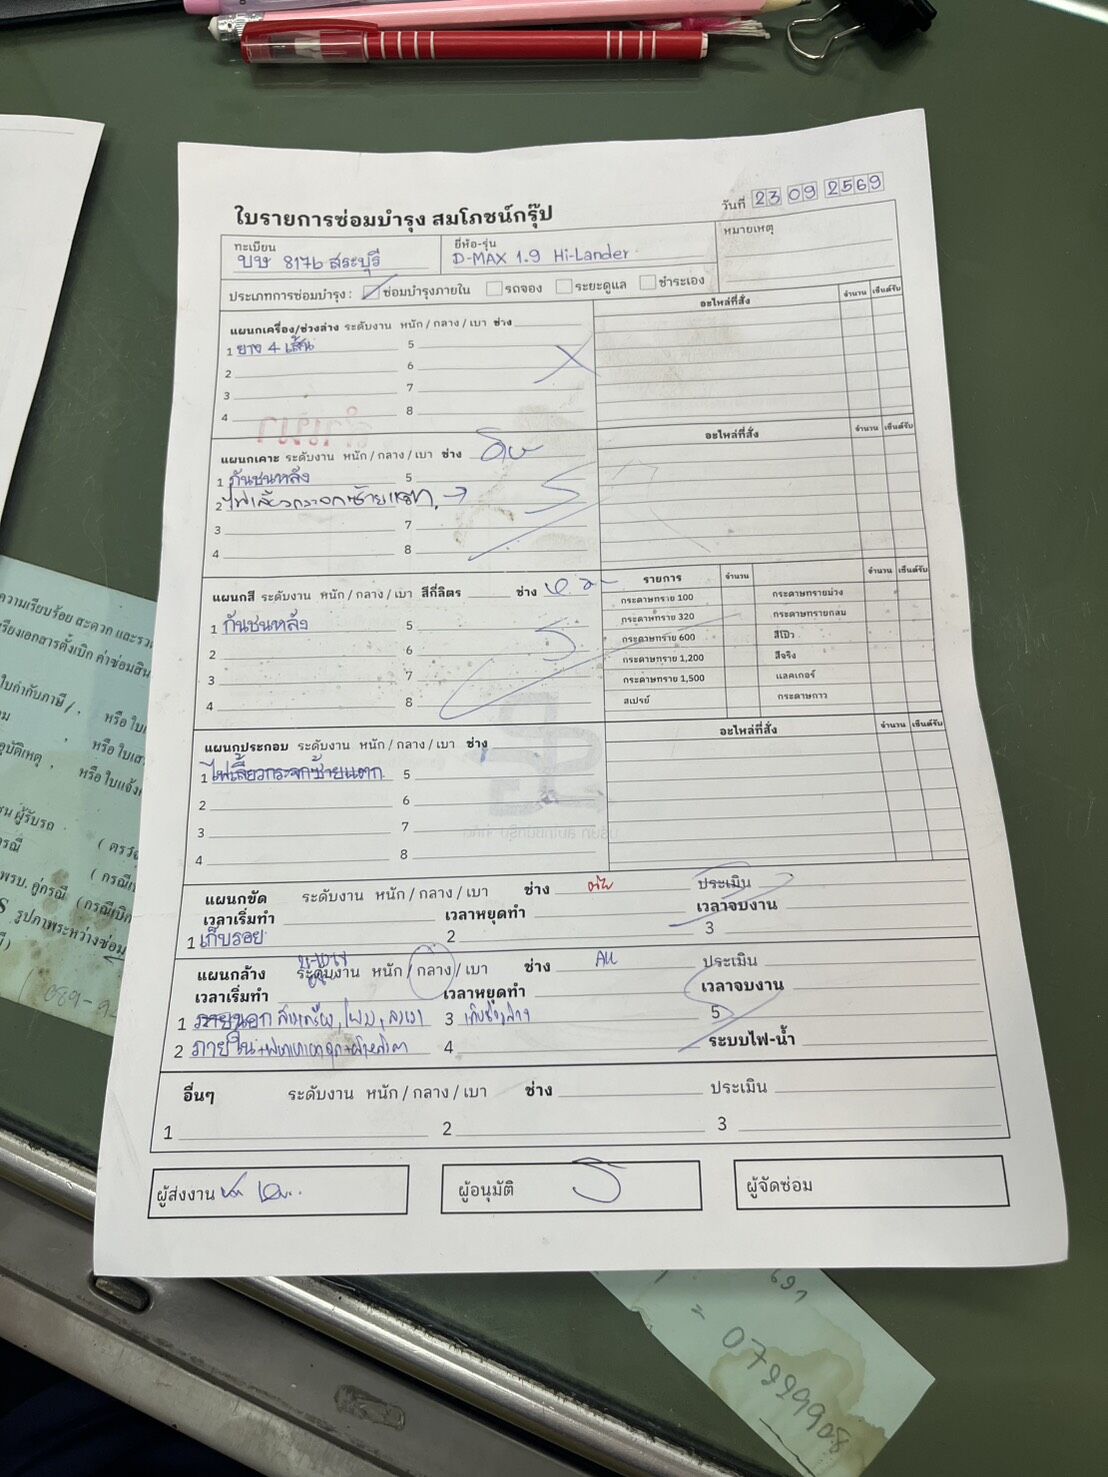 ใบรายการซ่อมบำรุง สมโภชน์กรุ๊ป
วันที่ 23 09 2569
ทะเบียน
บษ 8176 สระบุรี
ยี่ห้อ-รุ่น
D-MAX 1.9 Hi-Lander
หมายเหตุ
ประเภทการซ่อมบำรุง : ซ่อมบำรุงภายใน รถจอง ระยะดูแล ชำระเอง
แผนกเครื่อง/ช่วงล่าง ระดับงาน หนัก / กลาง / เบา ช่าง
1 ยาง 4 เส้น 5
2 6
3 7
4 8
อะไหล่ที่สั่ง จำนวน เซ็นต์รับ
แผนกเคาะ ระดับงาน หนัก / กลาง / เบา ช่าง
1 กันชนหลัง 5
2 ไฟเลี้ยวกระจกซ้ายแตก
3 7
4 8
อะไหล่ที่สั่ง จำนวน เซ็นต์รับ
แผนกสี ระดับงาน หนัก / กลาง / เบา สีกี่ลิตร ช่าง
1 กันชนหลัง 5
2 6
3 7
4 8
รายการ จำนวน จำนวน เซ็นต์รับ
กระดาษทราย 100 กระดาษทรายม่วง
กระดาษทราย 320 กระดาษทรายกลม
กระดาษทราย 600 สีโป๊ว
กระดาษทราย 1,200 สีจริง
กระดาษทราย 1,500 แลคเกอร์
สเปรย์ กระดาษกาว
แผนกประกอบ ระดับงาน หนัก / กลาง / เบา ช่าง
1 ไฟเลี้ยวกระจกซ้ายแตก 5
2 6
3 7
4 8
อะไหล่ที่สั่ง จำนวน เซ็นต์รับ
แผนกขัด ระดับงาน หนัก / กลาง / เบา ช่าง ประเมิน
เวลาเริ่มทำ เวลาหยุดทำ เวลาจบงาน
1 เก็บรอย 2 3
แผนกล้าง ระดับงาน หนัก / กลาง / เบา ช่าง ประเมิน
เวลาเริ่มทำ เวลาหยุดทำ เวลาจบงาน
1 ภายนอก 3 5
2 ภายใน 4 ระบบไฟ-น้ำ
อื่นๆ ระดับงาน หนัก / กลาง / เบา ช่าง ประเมิน
1 2 3
ผู้ส่งงาน
ผู้อนุมัติ
ผู้จัดซ่อม